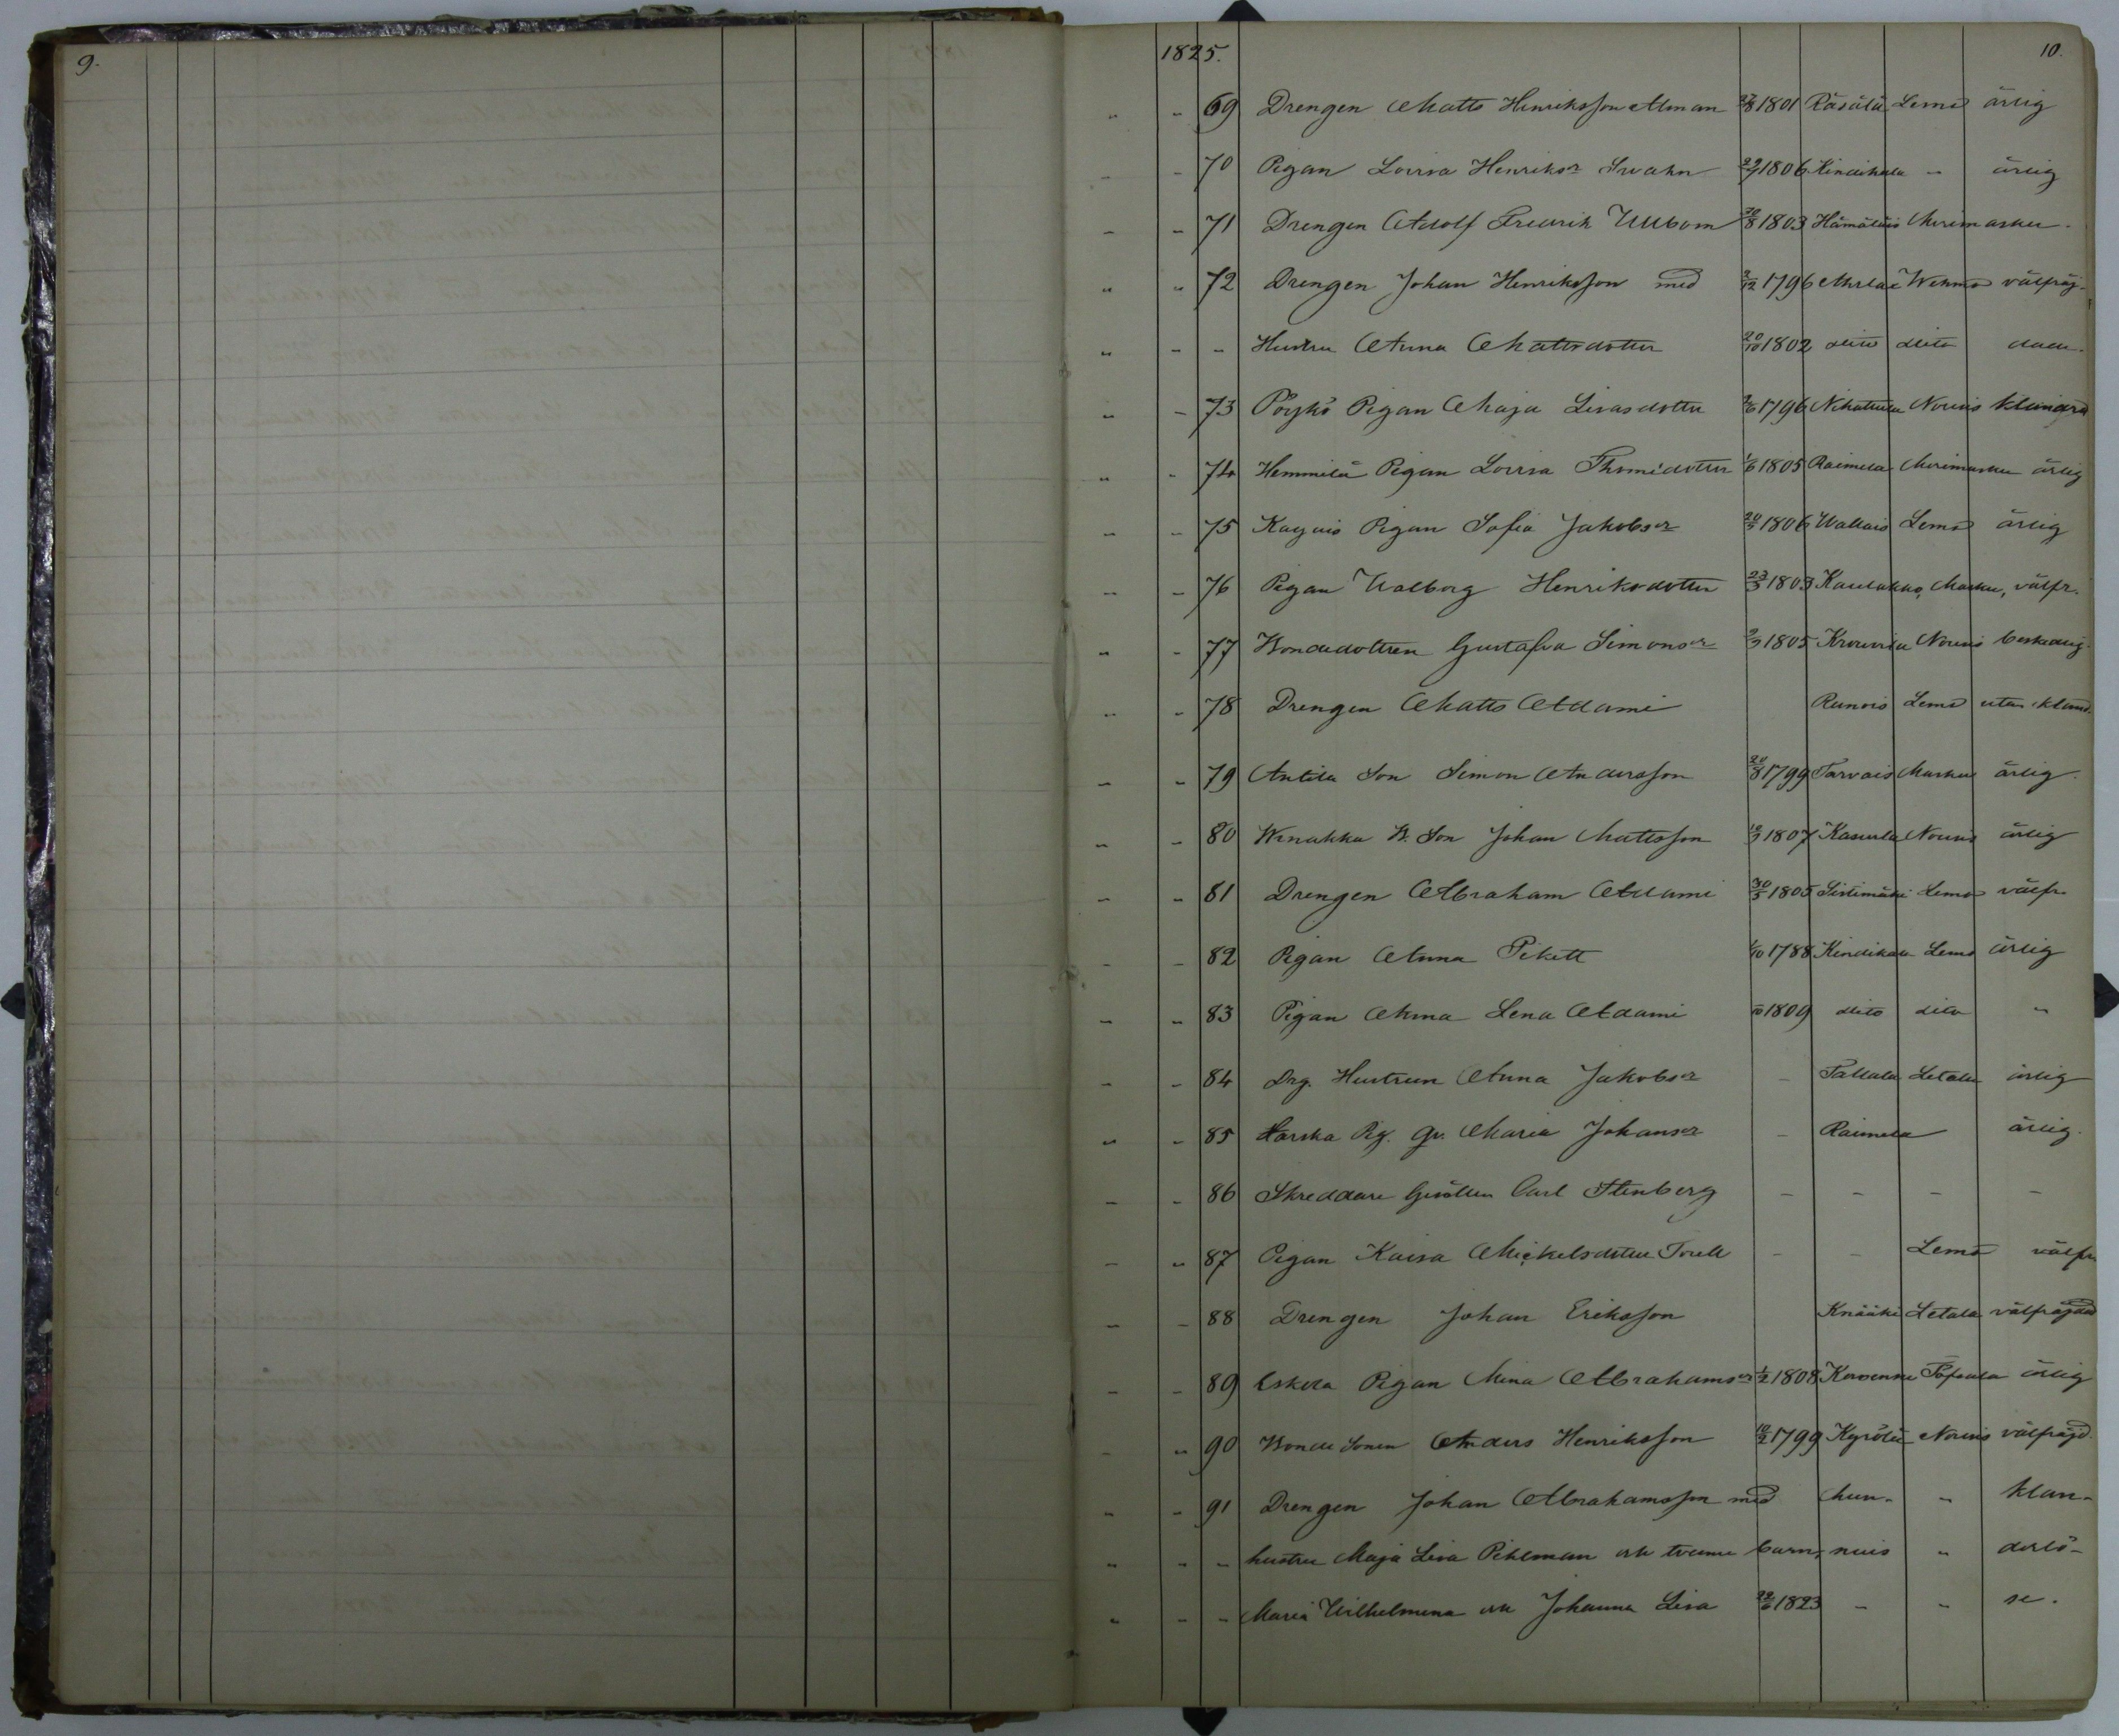 9.
1825. 10.
" " 69 Drengen Matts Henriksson Alman 27/8 1801 Räsälä Lemo ärlig
" " 70 Pigan Lovisa Henriksr Svahn 29/7 1806 Kindikala " ärlig
" " 71 Drengen Adolf Fredrik Ullbom 8 1803 Hämäläis Merimasku.
" " 72 Drengen Johan Henriksson med 2/12 1796 Wehmo välfräj-
" " " Hustru Anna Mattsdotter 20/10 1802 dito dito
" " 73 Pöykö Pigan Maja Lisasdotter 1796 Nihattula Nousis
" " 74 Hemmilä Pigan Lovisa Thomédotter 1/6 1805 Raimela Merimasku ärlig
" " 75 Kayais Pigan Sofia Jakobsr 1806 Wallais Lemo ärlig
" " 76 Pigan Walborg Henriksdotter 23/3 1803 Kaulakko, Masku, välfr.
" " 77 Bondedottren Gustafva Simonsr 1805 Nousis beskedlig.
" " 78 Drengen Matts Adami Runois Lemo utan kland.
" " 79 Antila Son Simon Andersson 20/8 1799 Tarvais Masku ärlig.
" " 80 Winakka B. Son Johan Mattsson 1807 Kasurla Nousis ärlig
" " 81 Drengen Abraham Adami 30/5 1805 Sirlimäki Lemo välfr.
" " 82 Pigan Anna Pikett 1/10 1788 Kindikala Lemo ärlig
" " 83 Pigan Anna Lena Adami 1809 dito dito "
" " 84 Drg. Hustrun Anna Jakobsr – Tallala Letala ärlig
" " 85 Harska Pig. Gv. Maria Johansr – Raimela ärlig.
" " 86 Skreddare Gesällen Carl Stenberg – – – –
" " 87 Pigan Kaisa Mickelsdotter Torell – – Lemo välfr.
" " 88 Drengen Johan Eriksson Knääki Letala välfräjdad
" " 89 Eskola Pigan Mina Abrahamsr 1/2 1808 Töfsala ärlig
" " 90 Bonde Sonen Anders Henriksson 10/2 1799 Kyrölä Nousis välfräjd.
" " 91 Drengen Johan Abrahamsson med Mun- " klan-
" " " hustru Maja Lisa Pihlman och tvenne barn, nuis " derlö-
" " " Maria Wilhelmina och Johanna Lisa 1823 – " se.